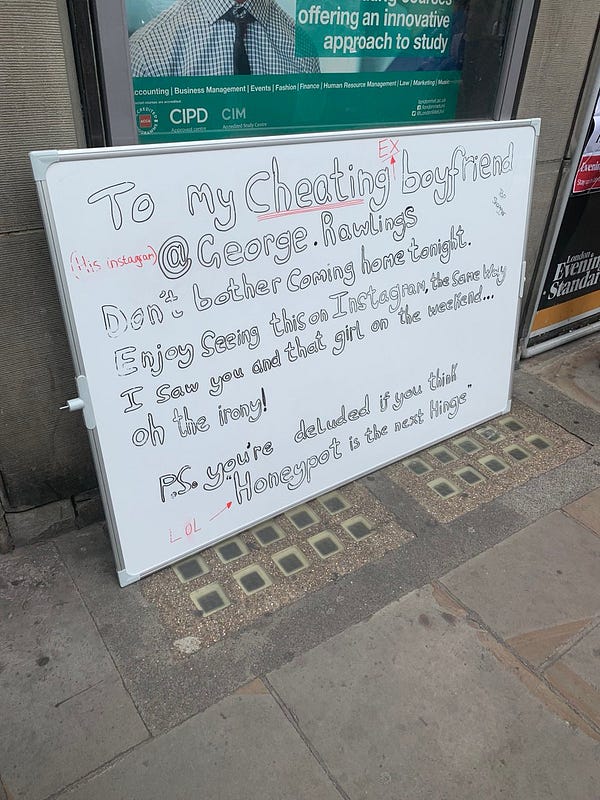 offering an innovative
approach to study
ccounting | Business Management | Events | Fashion | Finance | Human Resource Management | Law | Marketing | Music
ACCA
CIPD
Approved centre
CIM
Accredited Study Centre
EX
To my Cheating boyfriend
(His instagram) @George.Rawlings
Don't bother Coming home tonight.
Enjoy Seeing this on Instagram, the same way
I saw you and that girl on the weekend...
oh the irony!
P.S. you're deluded if you think
"Honeypot is the next Hinge"
LOL
London
Evening
Standar